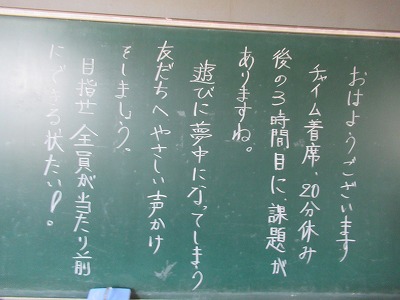 おはようございます
チャイム着席、20分休み
後の3時間目に課題が
ありますね。
遊びに夢中になってしまう
友だちへやさしい声かけ
をしましょう、
目指せ 全員が当たり前
にできる状たい!。